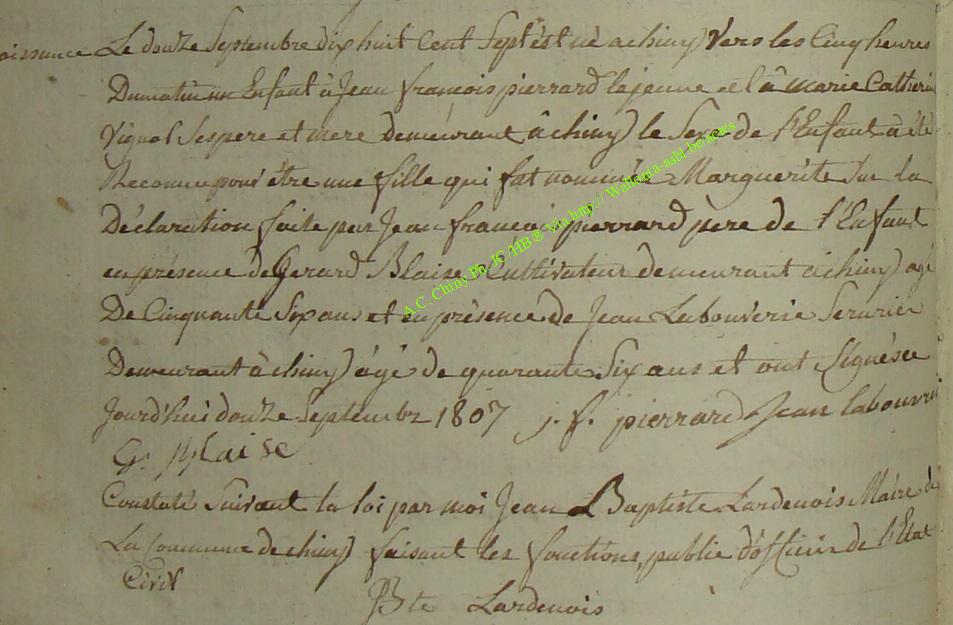 aissance Le douze Septembre dix huit Cent Sept est né a chiny vers les Cinq heures
Du matin un Enfant à Jean françois pierrard lajeune et â marie Catherin
Vignol Ses pere et mere demeurant â chiny le Sexe de l'Enfant à été
Reconnu pour être une fille qui fut nommée Marguerite Sur la
Déclaration faite par Jean françois pierrard père de l'Enfant
en présence de Gerard Blaise Cultivateur demeurant à chiny agé
De Cinquante Six ans et en présence de Jean Labouverie Serurier
Demeurant à chiny âgé de quarante Six ans et ont Signés ce
Jourd'hui douze Septembre 1807 j. f. pierrard Jean labouvri
G. Blaise
Constaté Suivant la loi par moi Jean Baptiste Lardenois Maire de
La Commune de chiny faisant les fonctions, public d'officier de l'Etat
Civil
JBte Lardenois
A.C. Chiny Ph. JC HB ® via http// Wallonia-asbl-be/acges